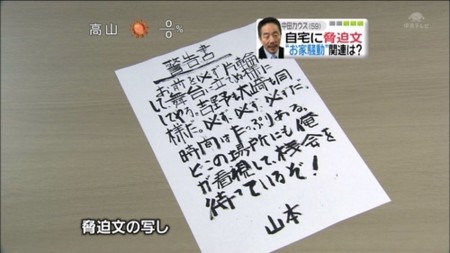 高山
0
0%
中田カウス(59)
自宅に脅迫文
"お家騒動"関連は?
警告書
お前を必ず片輪に
して舞台に立てぬ様に
してやる。吉野も大崎も同
様だ。必ず、必ず、必ずだ。
時間はたっぷりある。
どこの場所にも俺
が看視して、機会を
待っているぞ!
山本
脅迫文の写し